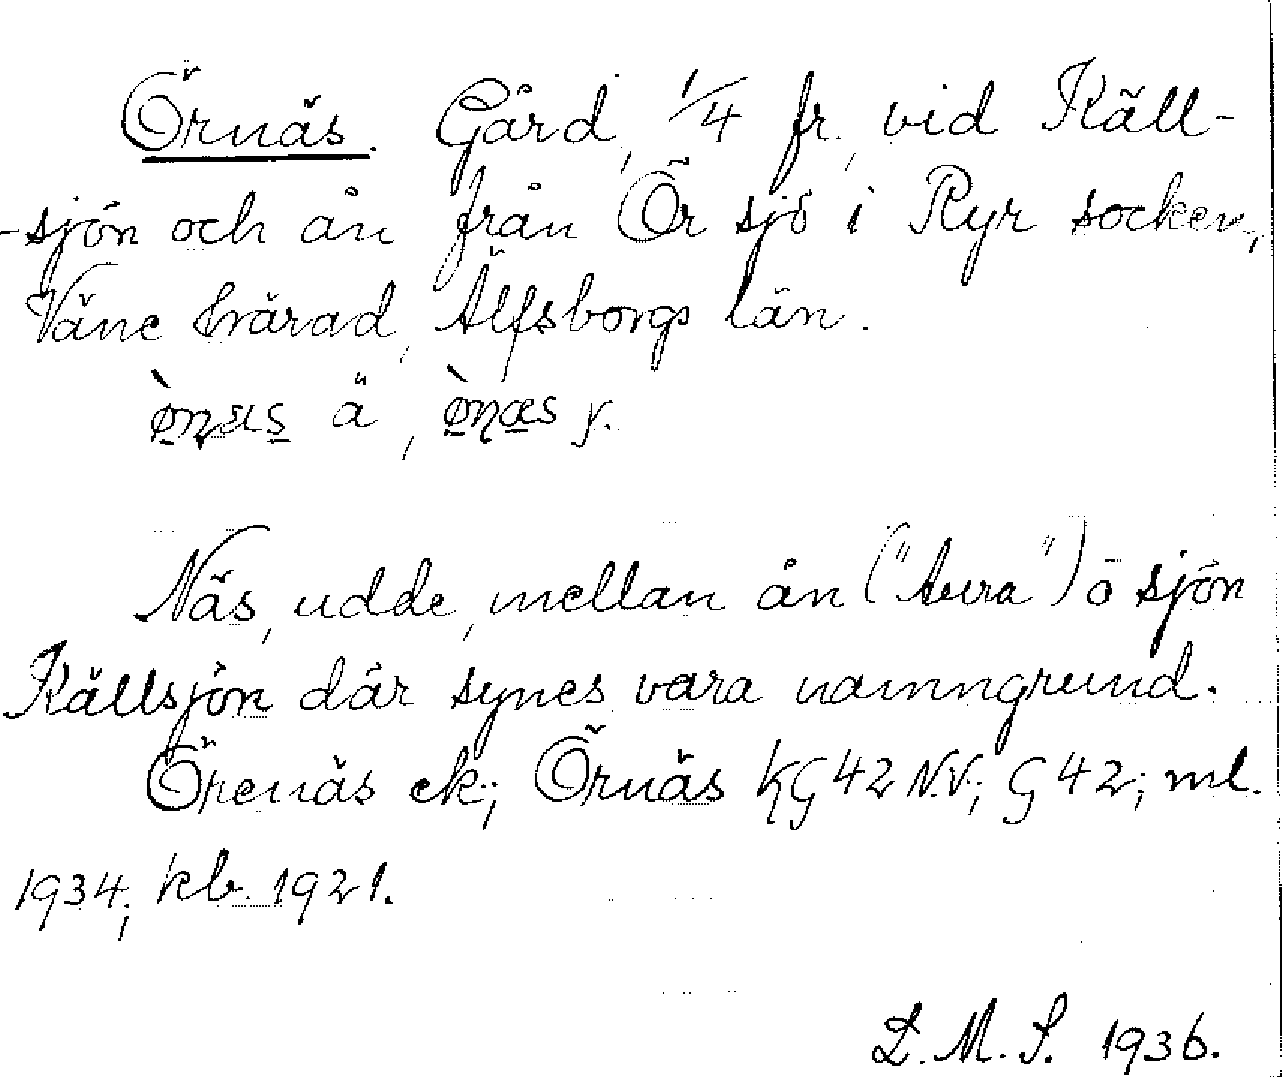 Örnäs. Gård, 1/4 fr., vid Käll-
-sjön och ån från Ör sjö i Ryr socken,
Väne härad, Älfsborgs län.
ä, y.
Näs, udde, mellan ån ("Aura") o sjön
Källsjön där synes vara namngrund.
Örenäs ek; Örnäs KG 42 N.V; G 42; ml.
1934; kb. 1921.
L. M. S. 1936.